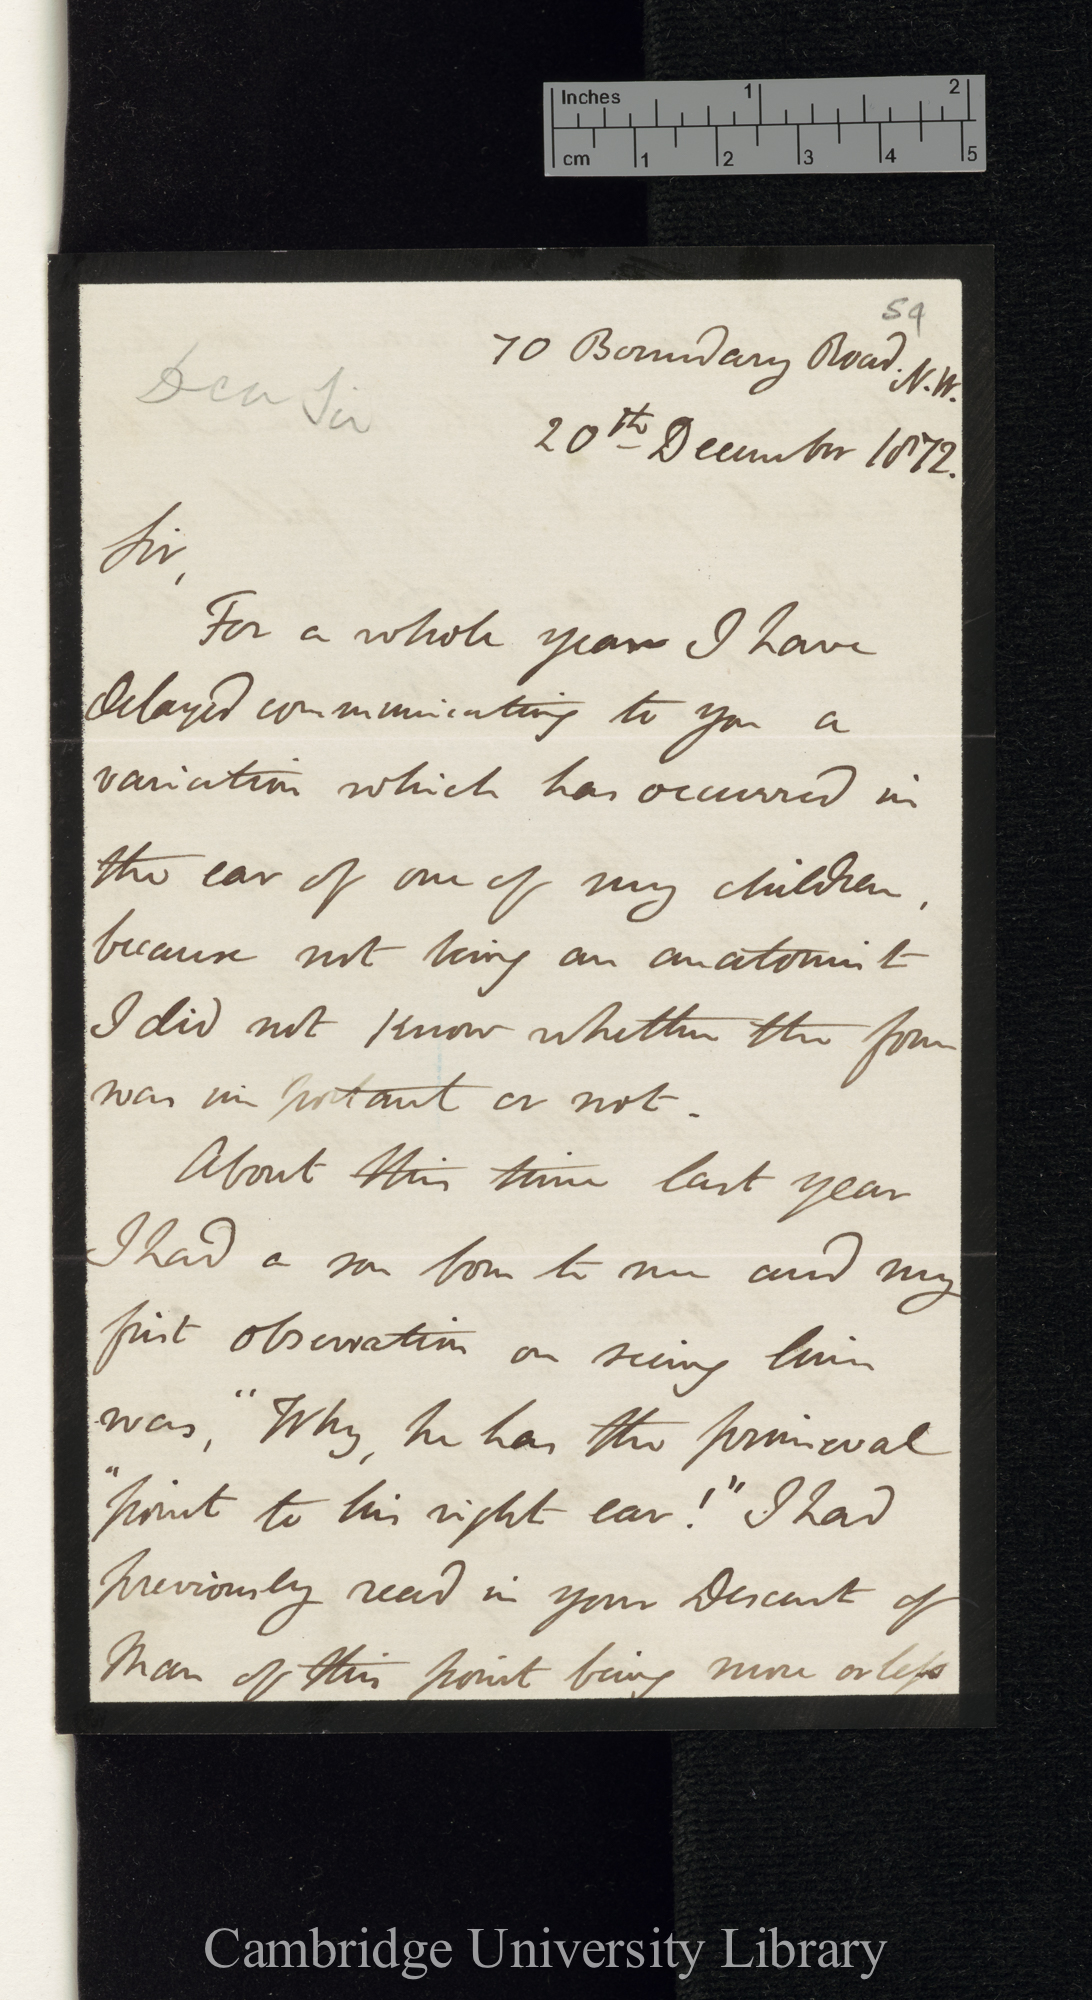 Inches 1 2
cm 1 2 3 4 5
59
70 Boundary Road. N.W.
Dear Sir
20th December 1872.
Sir,
For a whole year I have
delayed communicating to you a
variation which has occurred in
the ear of one of my children,
because not being an anatomist
I did not know whether the form
was important or not.
About this time last year
I had a son born to me and my
first observation on seeing him
was, "Why, he has the primæval
"point to his right ear!" I had
previously read in your Descent of
Man of this point being more or less
Cambridge University Library